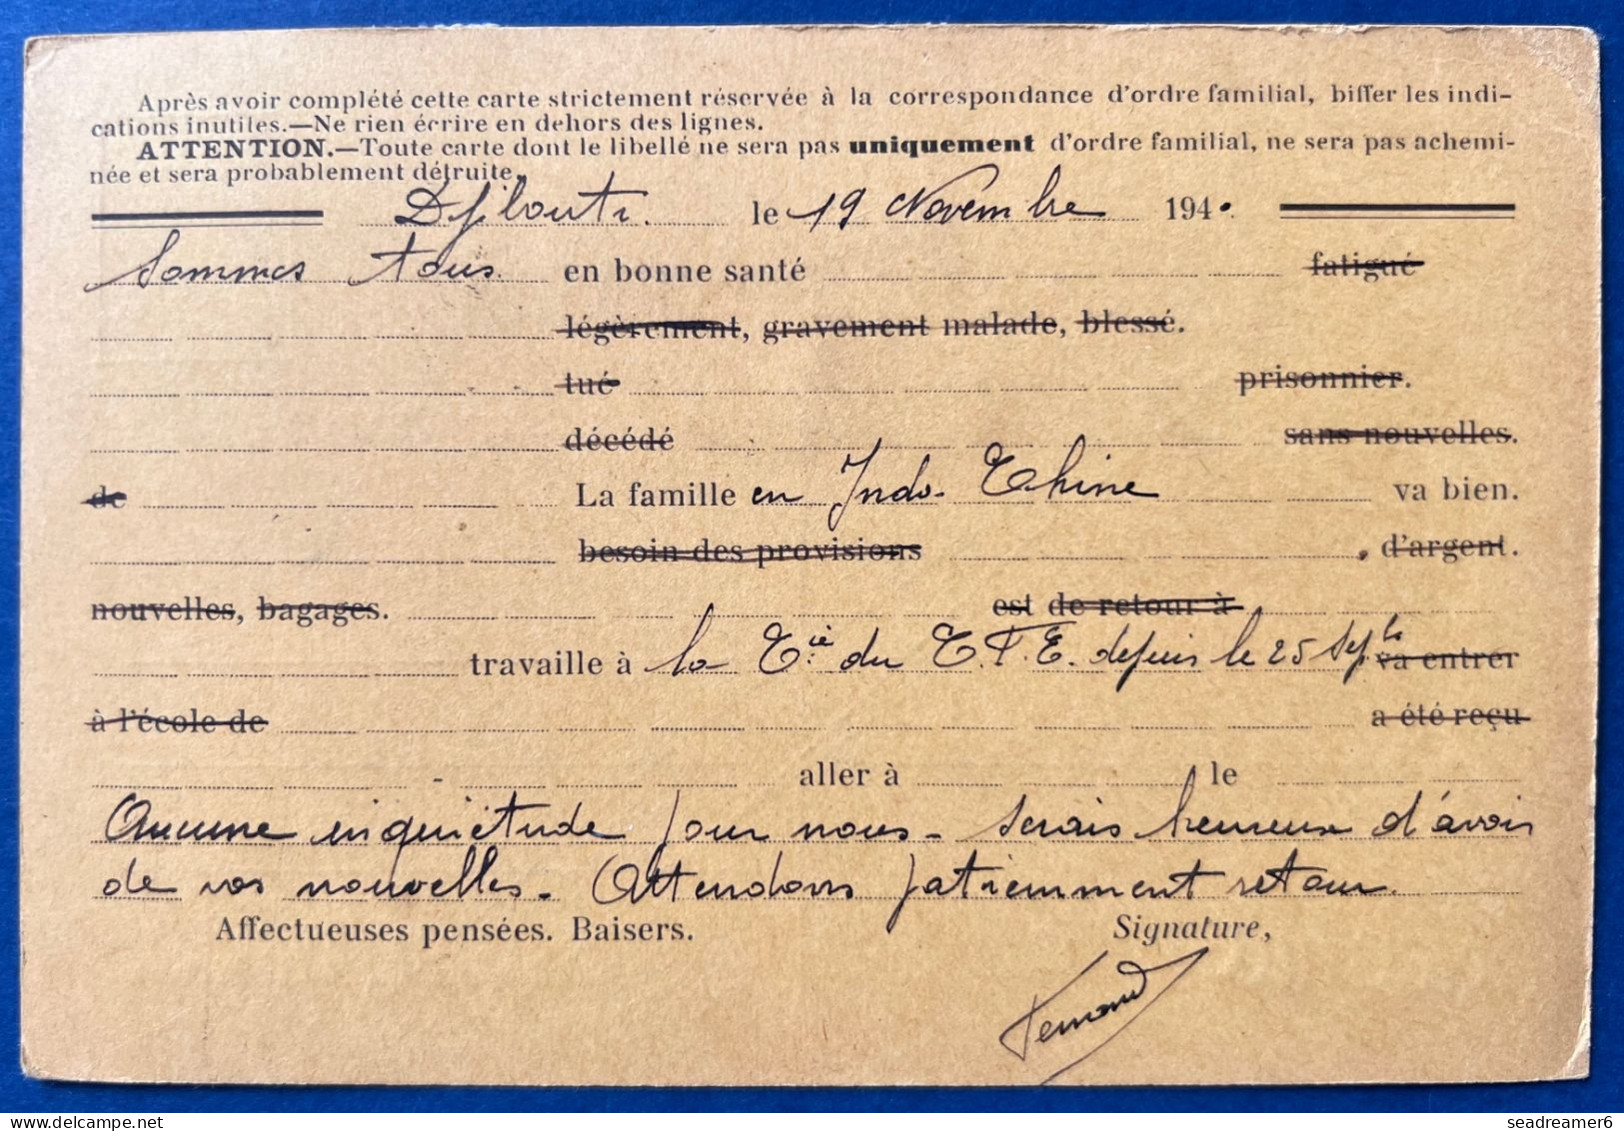 Après avoir complété cette carte strictement réservée à la correspondance d'ordre familial, biffer les indi-
cations inutiles.—Ne rien écrire en dehors des lignes.
ATTENTION.—Toute carte dont le libellé ne sera pas uniquement d'ordre familial, ne sera pas achemi-
née et sera probablement détruite.
Djibouti. le 19 Novembre 194 0
Sommes tous en bonne santé fatigué
légèrement, gravement malade, blessé.
tué prisonnier.
décédé sans nouvelles.
de La famille en Indo-Chine va bien.
besoin des provisions d'argent.
nouvelles, bagages. est de retour à
travaille à la Cie du C.F.E. depuis le 25 Sep va entrer
à l'école de a été reçu
aller à le
Aucune inquiétude pour nous - Serais heureux d'avoir
de vos nouvelles - Attendons patiemment retour.
Affectueuses pensées. Baisers. Signature,
Fernand
www.seadreamer6.delcampe.net